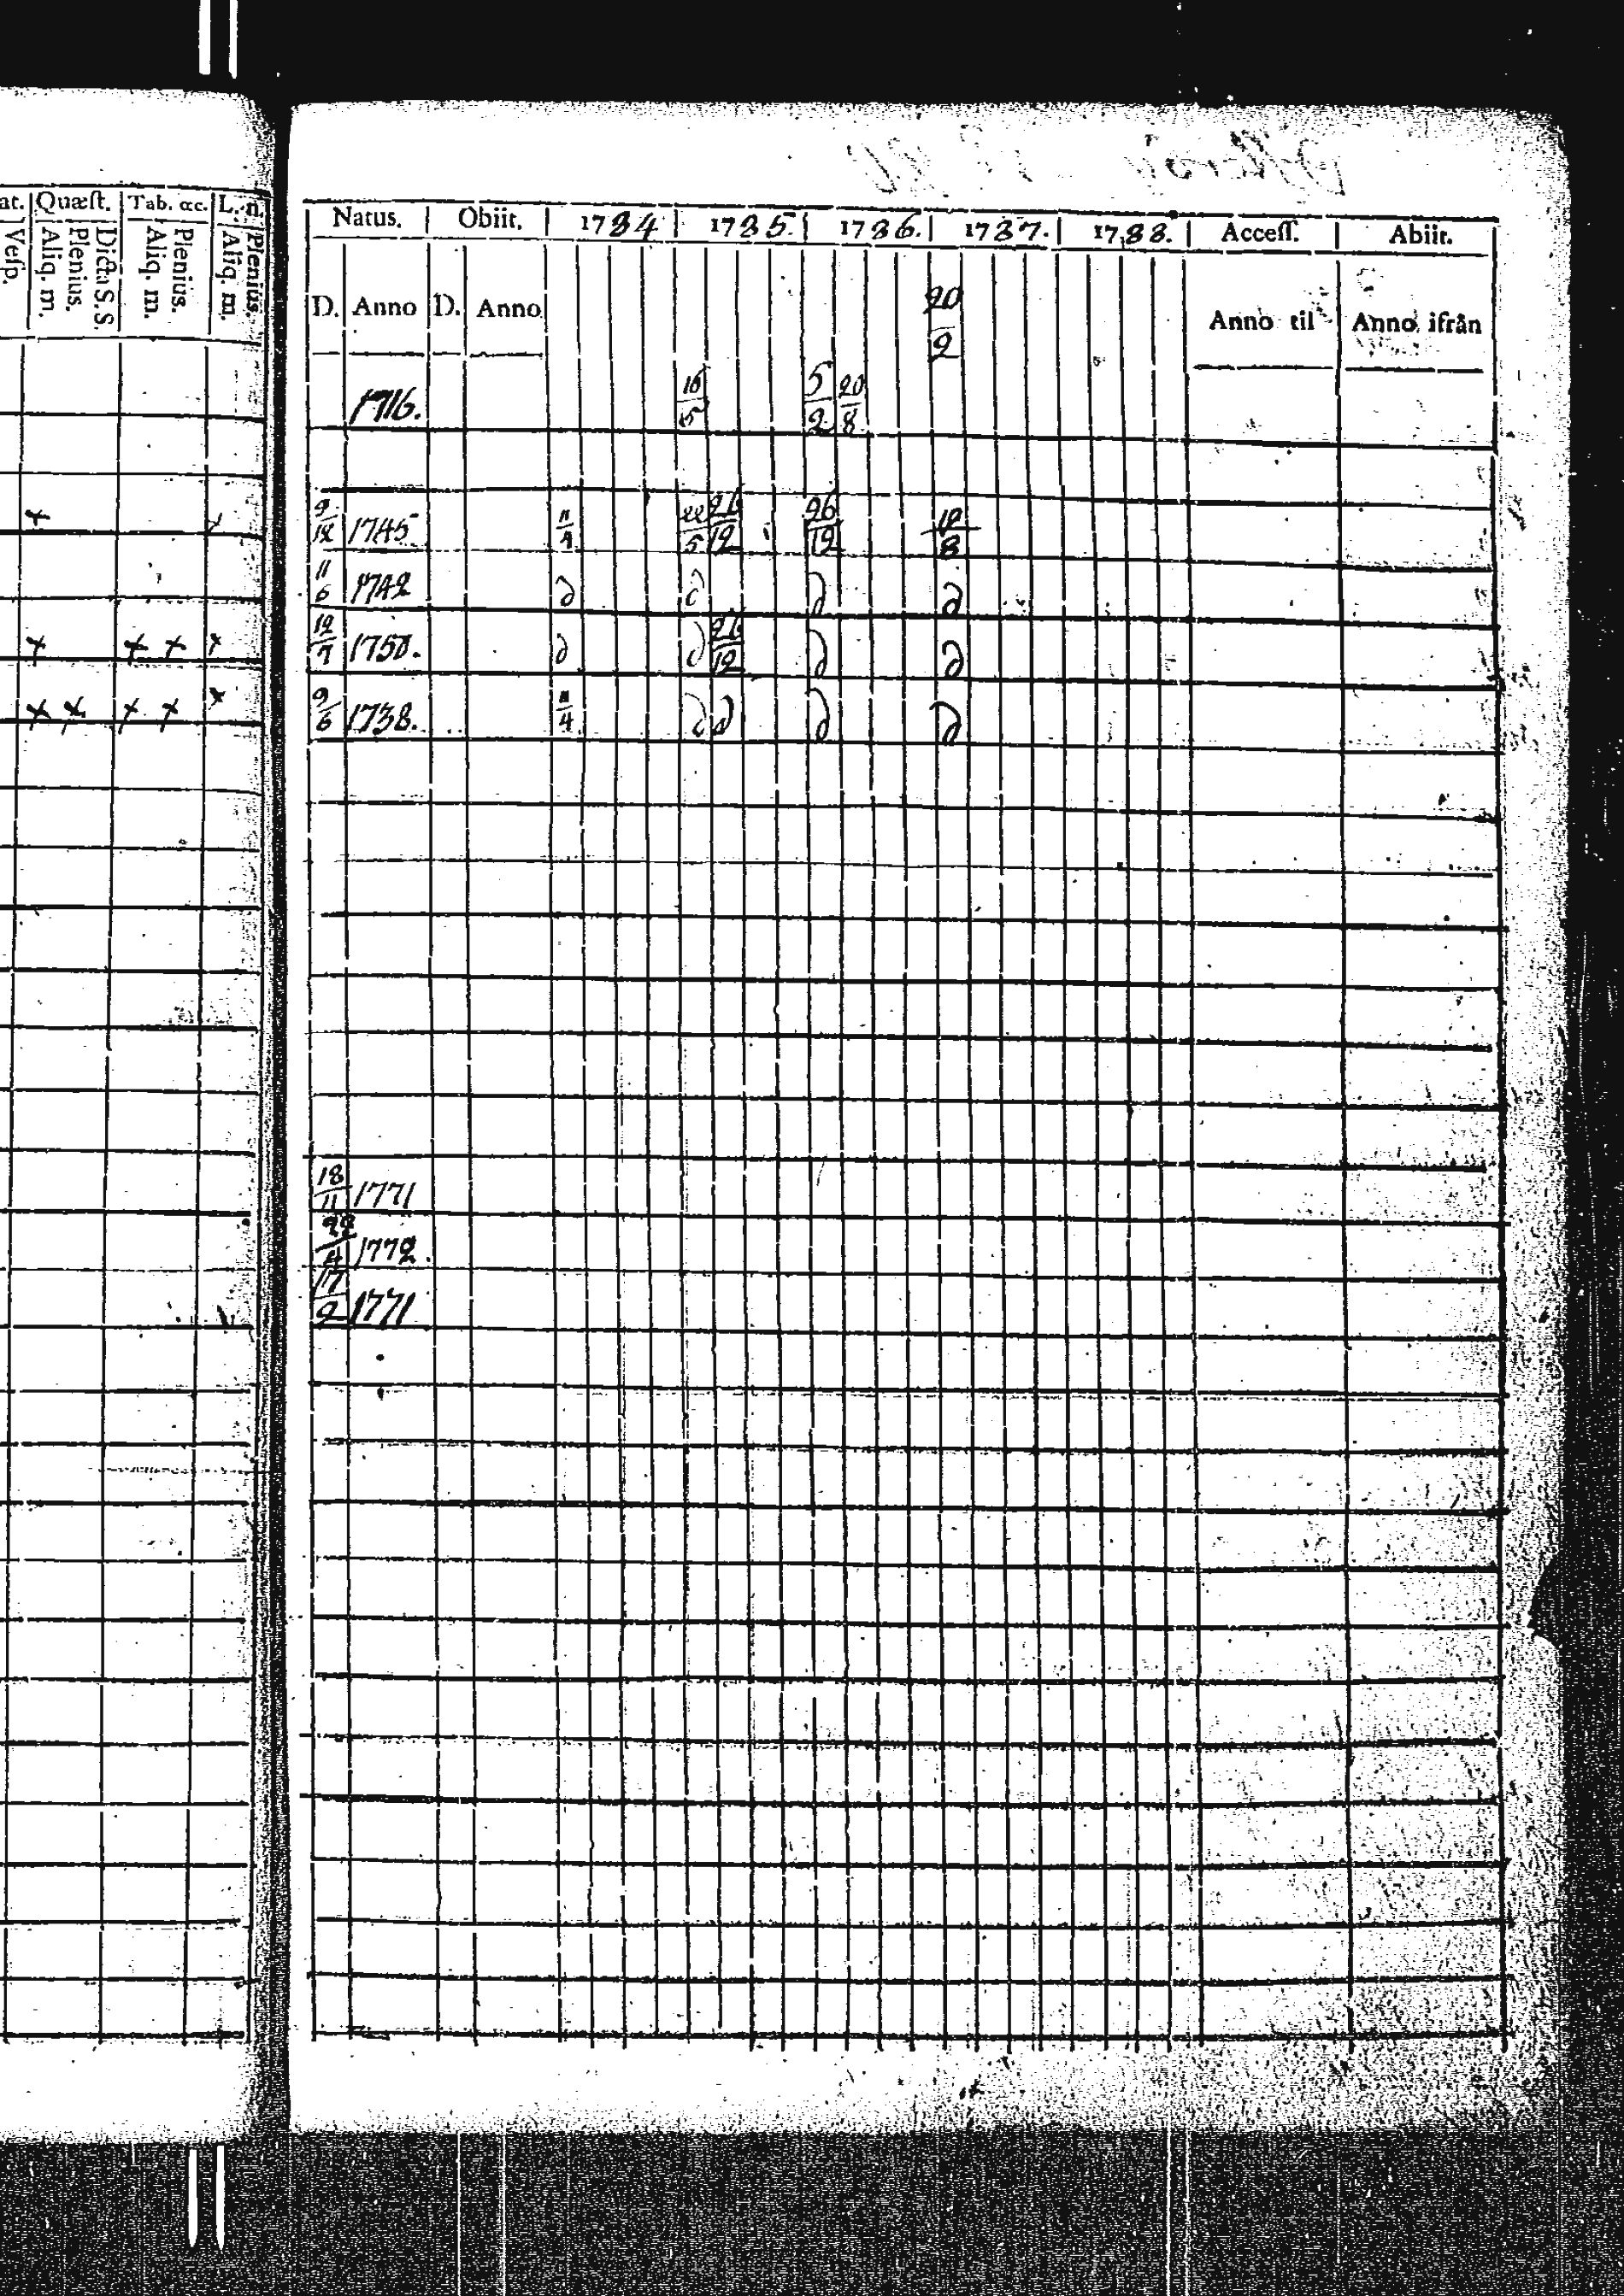 at. Quæſt. Tab. œc. L. n.
Veſp. Aliq. m. Plenius. Dicta S. S. Aliq. m. Plenius. Aliq. m. Plenius.
Natus. Obiit. 1784 1785. 1786. 1787. 1788. Acceſſ. Abiit.
D. Anno D. Anno 20/2 Anno til Anno ifrån
1716. 16/5 5/2 20/8
+ 9/12 1745 11/4 22/5 26/12 26/12 12/8
11/6 1742 d d d d
+ + + + 12/7 1750. d d 26/12 d d
+ + + + + 9/6 1738. 11/4 d d d d
18/11 1771
28/4 1772.
17/2 1771